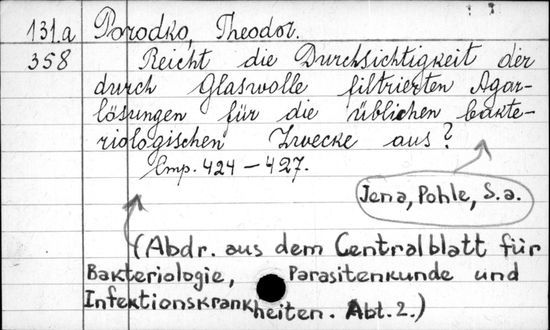 131.a Porodko, Theodor.
358 Reicht die Durchsichtigkeit der
durch Glaswolle filtrierten Agar-
lösungen für die üblichen bakte-
riologischen Zwecke aus?
Стр. 424-427.
Jena, Pohle, S.a.
(Abdr. aus dem Centralblatt für
Bakteriologie, Parasitenkunde und
Infektionskrankheiten. Abt. 2.)